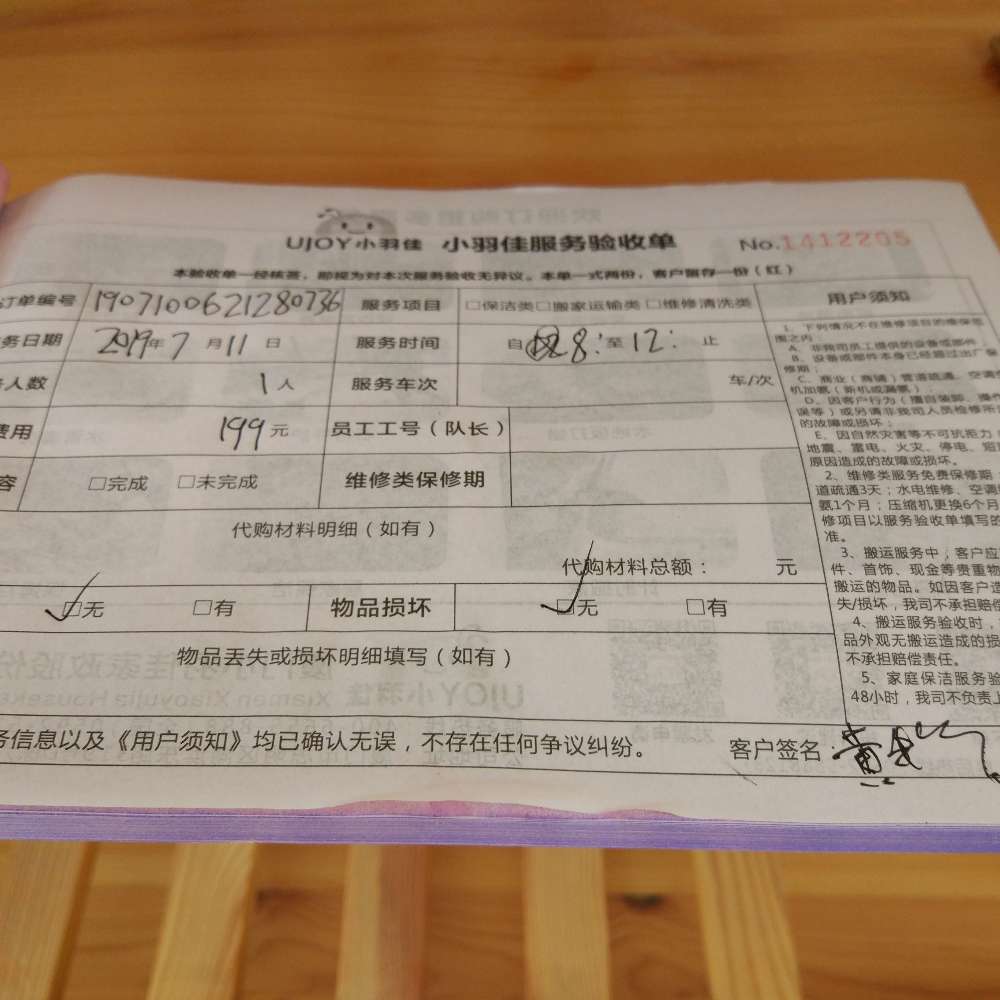 UJOY小羽佳 小羽佳服务验收单 No.1412205
本验收单一经核签，即视为对本次服务验收无异议。本单一式两份，客户留存一份（红）
订单编号 1907100621280736 服务项目 □保洁类□搬家运输类□维修清洗类 用户须知
务日期 2019年7月11日 服务时间 自 8:至12:止
人数 1人 服务车次 车/次
费用 199元 员工工号（队长）
容 □完成 □未完成 维修类保修期
代购材料明细（如有）
代购材料总额： 元
□无 □有 物品损坏 □无 □有
物品丢失或损坏明细填写（如有）
务信息以及《用户须知》均已确认无误，不存在任何争议纠纷。 客户签名：黄
1、下列情况不在维修项目的维保范
围之内
A、非我司员工提供的设备或部件
B、设备或部件本身已经超过出厂保
修期；
C、商业（商铺）管道疏通、空调
机加氨（新机或漏氨）
D、因客户行为（擅自装卸、操作
误等）或另请非我司人员检修所
的故障或损坏；
E、因自然灾害等不可抗拒力（
地震、雷电、火灾、停电、短
原因造成的故障或损坏。
2、维修类服务免费保修期：
道疏通3天；水电维修、空调
氨1个月；压缩机更换6个月
修项目以服务验收单填写的
准。
3、搬运服务中，客户应
件、首饰、现金等贵重物
搬运的物品。如因客户造
失/损坏，我司不承担赔偿
4、搬运服务验收时，
品外观无搬运造成的损
不承担赔偿责任。
5、家庭保洁服务验
48小时，我司不负责上